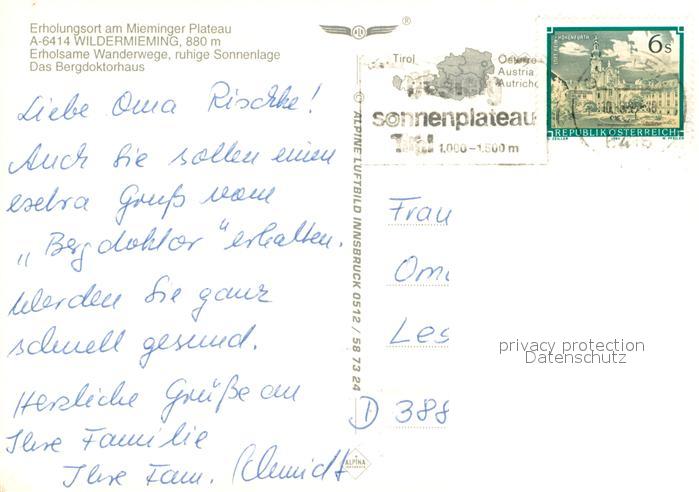 Erholungsort am Mieminger Plateau
A-6414 WILDERMIEMING, 880 m
Erholsame Wanderwege, ruhige Sonnenlage
Das Bergdoktorhaus
Liebe Oma Rischke!
Auch Sie sollen einen
extra Gruß vom
„Bergdoktor" erhalten.
Werden Sie ganz
schnell gesund.
Herzliche Grüße an
Ihre Familie
Ihre Fam. Schmidt
®
Tirol
Austria
Autriche
sonnenplateau
Tirol 1.000-1.500 m
STIFT REIN-HOHENFURTH
6s
REPUBLIK ÖSTERREICH
© ALPINE LUFTBILD INNSBRUCK 0512 / 58 73 24
ALPINA
Frau
Om
Les
D 388
privacy protection
Datenschutz